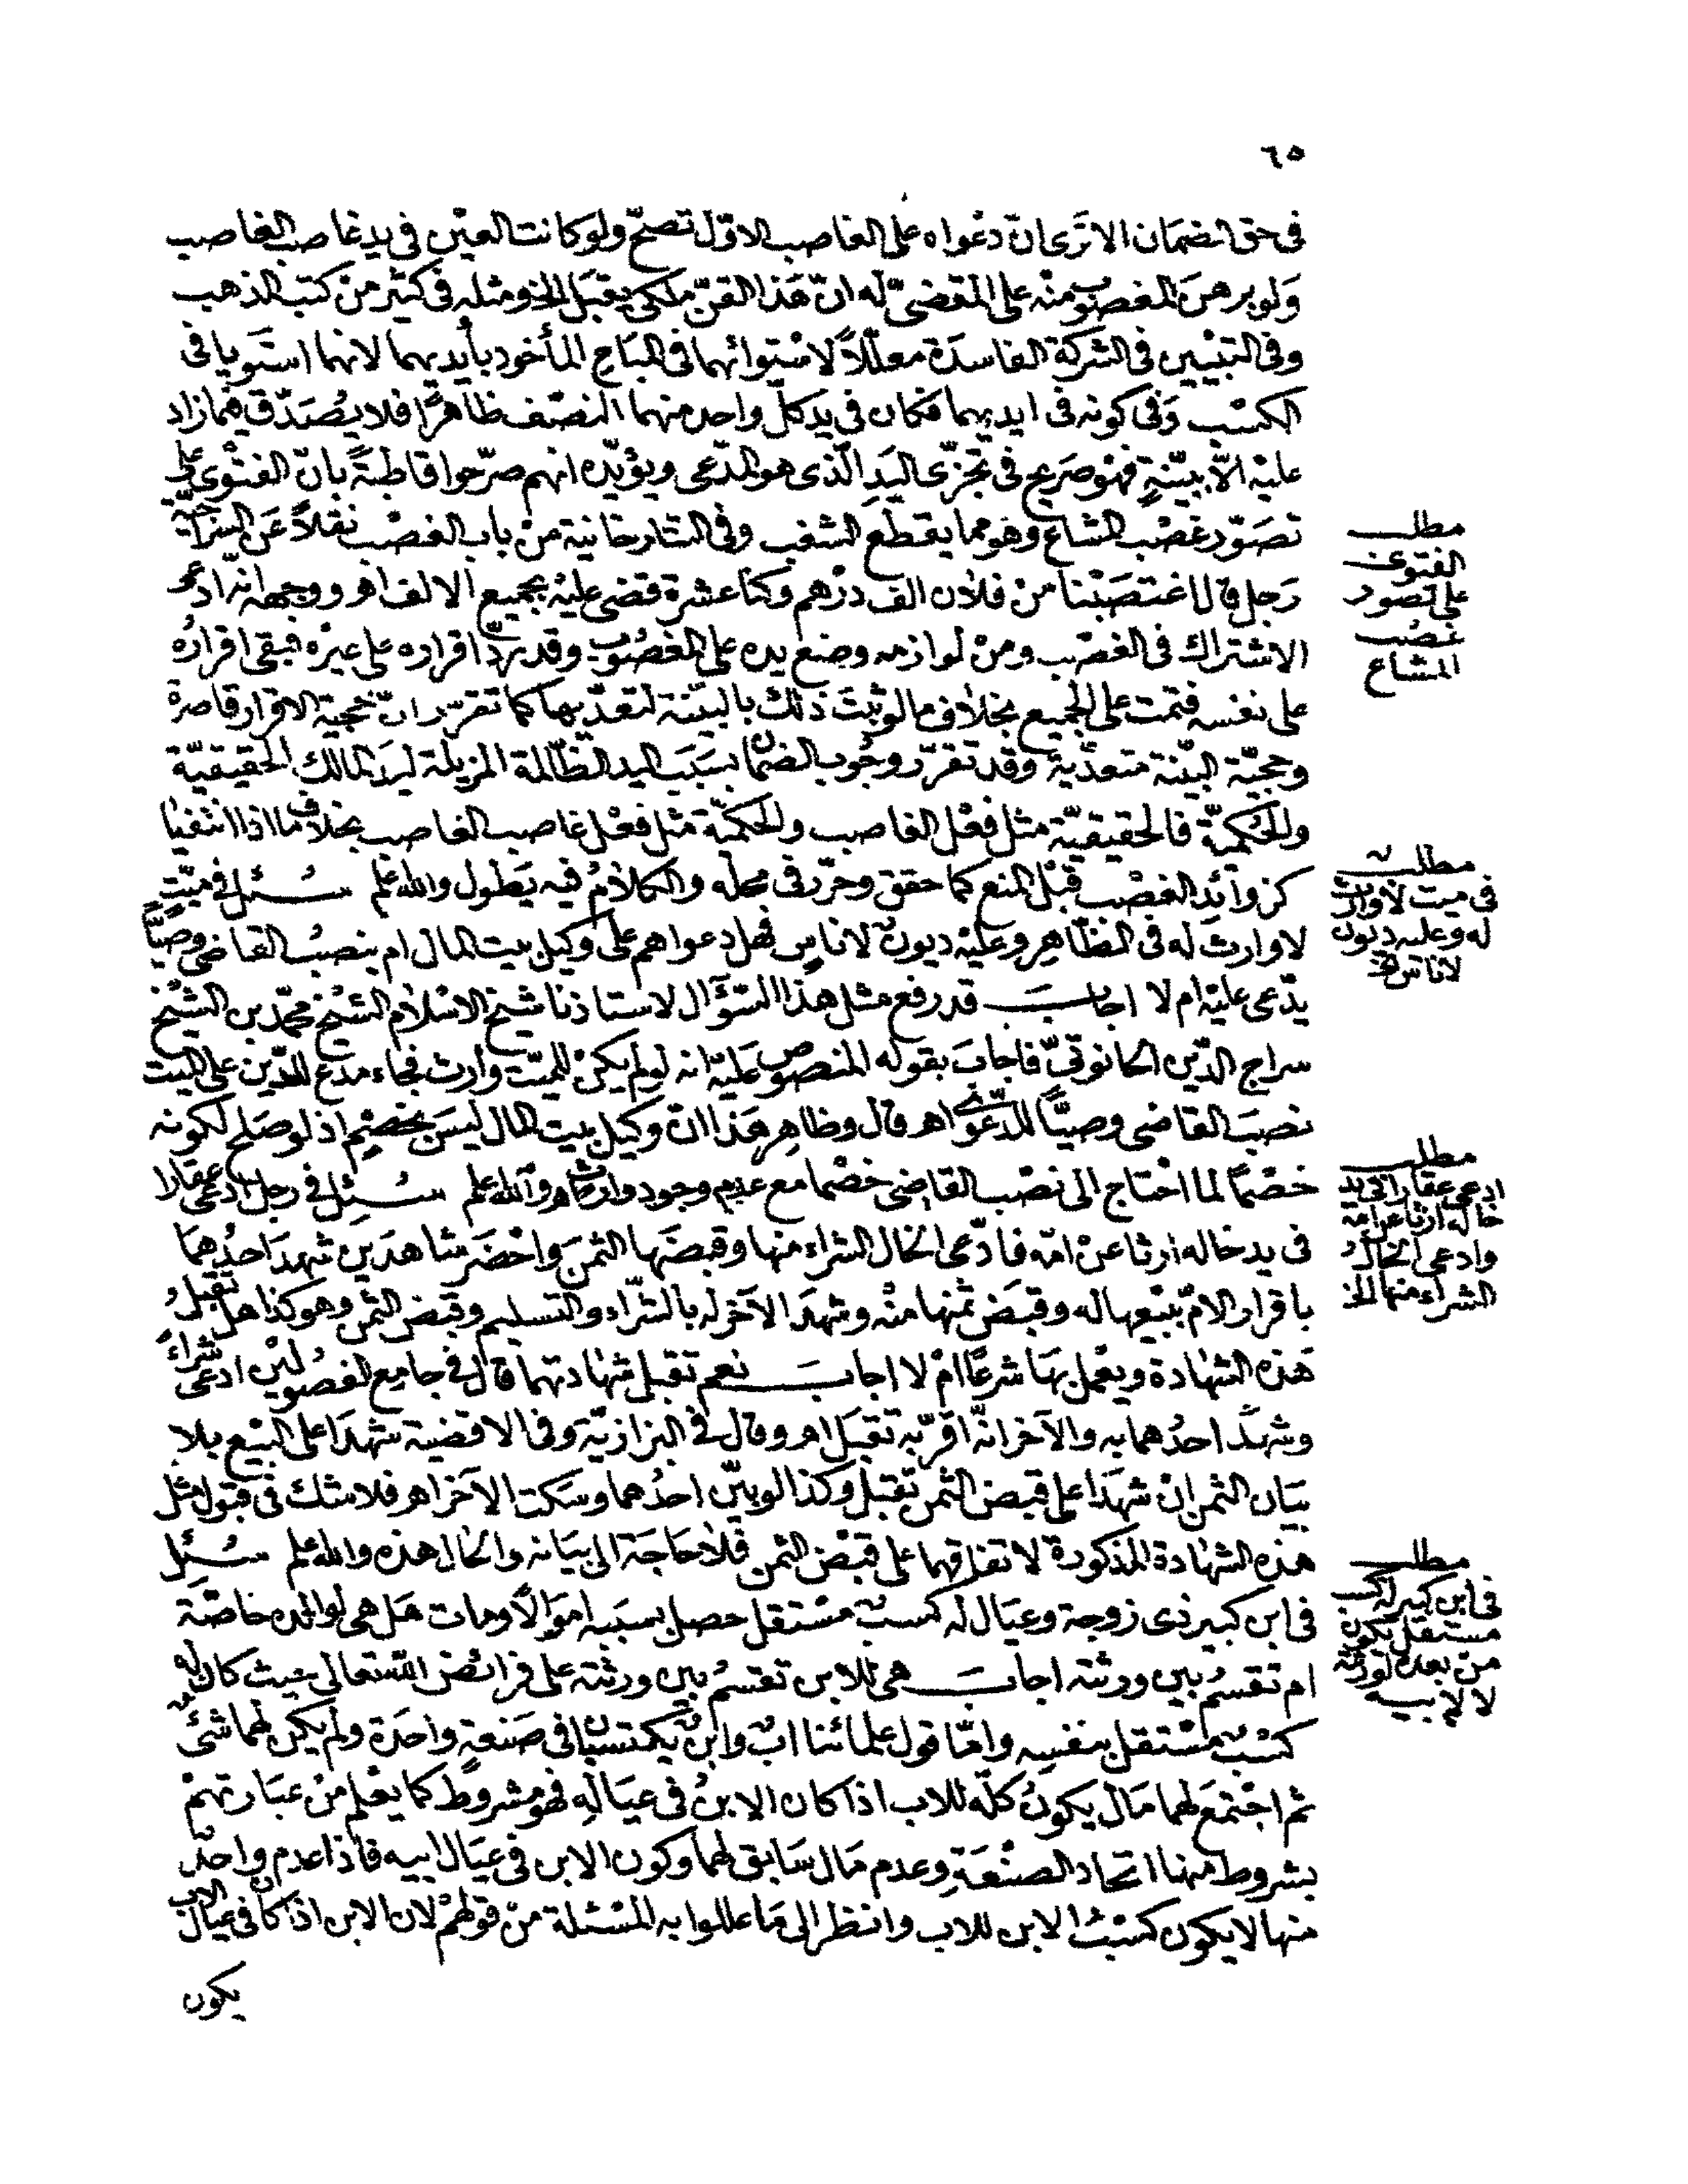 ٦٥
فى حق الضمان الا ترى ان دعواه على الغاصب الاول تصح ولو كانت العين فى يد غاصب الغاصب
ولو برهن المغصوب منه على المقضى له ان هذا القن ملكى يقبل الخ ومثله فى كثير من كتب المذهب
وفى التبيين فى الشركة الفاسدة معللا لاستوائهما فى المباح المأخود بأيديهما لانهما استويا فى
الكسب وفى كونه فى ايديهما فكان فى يد كل واحد منهما النصف ظاهرا فلا يصدق فيما زاد
عليه الا ببينة فهو صريح فى تجزى اليد الذى هو المدعى ويؤيده انهم صرحوا قاطبة بان الفتوى على
تصور غصب المشاع وهو مما يقطع الشغب وفى التتارخانية من باب الغصب نقلا عن البزازية
مطلب
الفتوى
على تصور
غصب
المشاع
رجل قال اغتصبنا من فلان الف درهم وكنا عشرة قضى عليه بجميع الالف اهـ ووجهه انه ادعى
الاشتراك فى الغصب ومن لوازمه وضع يده على المغصوب وقد رد اقراره على غيره فبقى اقراره
على نفسه فتمت على الجميع بخلاف ما لو ثبت ذلك بالبينة لتعديها كما تقرر ان حجية الاقرار قاصرة
وحجية البينة متعدية وقد تقرر وجوب الضمان بسبب اليد الظالمة المزيلة ليد المالك الحقيقية
والحكمية فالحقيقية مثل فعل الغاصب والحكمية مثل فعل غاصب الغاصب بخلاف ما اذا انتفيا
كزوائد الغصب قبل المنع كما حقق وحرر فى محله والكلام فيه يطول والله اعلم سئل فى ميت
مطلب
فى ميت لا وارث
له وعليه ديون
لاناس الخ
لا وارث له فى الظاهر وعليه ديون لاناس فهل دعواهم على وكيل بيت المال ام ينصب القاضى وصيا
يدعى عليه ام لا اجاب قد رفع مثل هذا السؤال لاستاذنا شيخ الاسلام الشيخ محمد بن الشيخ
سراج الدين الحانوتى فاجاب بقوله المنصوص عليه انه لو لم يكن للميت وارث فجاء مدع للدين على الميت
نصب القاضى وصيا للدعوى اهـ قال وظاهر هذا ان وكيل بيت المال ليس بخصم اذ لو صلح لكونه
خصما لما احتاج الى نصب القاضى خصما مع عدم وجود وارث اهـ والله اعلم سئل فى رجل ادعى عقارا
مطلب
ادعى عقارا فى يد
خاله ارثا عن امه
وادعى الخال
الشراء منها الخ
فى يد خاله ارثا عن امه فادعى الخال الشراء منها وقبضها الثمن واحضر شاهدين شهد احدهما
باقرار الام ببيعها له وقبض ثمنها منه وشهد الآخر له بالشراء والتسليم وقبض الثمن وهو كذا هل تقبل
هذه الشهادة ويعمل بها شرعا ام لا اجاب نعم تقبل شهادتهما قال فى جامع الفصولين ادعى شراء
وشهد احدهما به والآخر انه اقر به تقبل اهـ وقال فى البزازية وفى الاقضية شهدا على البيع بلا
بيان الثمن ان شهدا على قبض الثمن تقبل وكذا لو بين احدهما وسكت الآخر اهـ فلا شك فى قبول مثل
هذه الشهادة المذكورة لاتفاقهما على قبض الثمن فلا حاجة الى بيانه والحال هذه والله اعلم سئل
مطلب
فى ابن كبير له كسب
مستقل يكون
من بعده لورثته
لا لابيه
فى ابن كبير ذى زوجة وعيال له كسب مستقل حصل بسببه اموالا ومات هل هى لوالده خاصة
ام تقسم بين ورثته اجاب هى للابن تقسم بين ورثته على فرائض الله تعالى حيث كان له
كسب مستقل بنفسه واما قول علمائنا اب وابن يكتسبان فى صنعة واحدة ولم يكن لهما شئ
ثم اجتمع لهما مال يكون كله للاب اذا كان الابن فى عياله فهو مشروط كما يعلم من عبارتهم
بشروط منها اتحاد الصنعة وعدم مال سابق لهما وكون الابن فى عيال ابيه فاذا عدم واحد
منها لا يكون كسب الابن للاب وانظر الى ما عللوا به المسئلة من قولهم لان الابن اذا كان فى عيال الاب
يكون